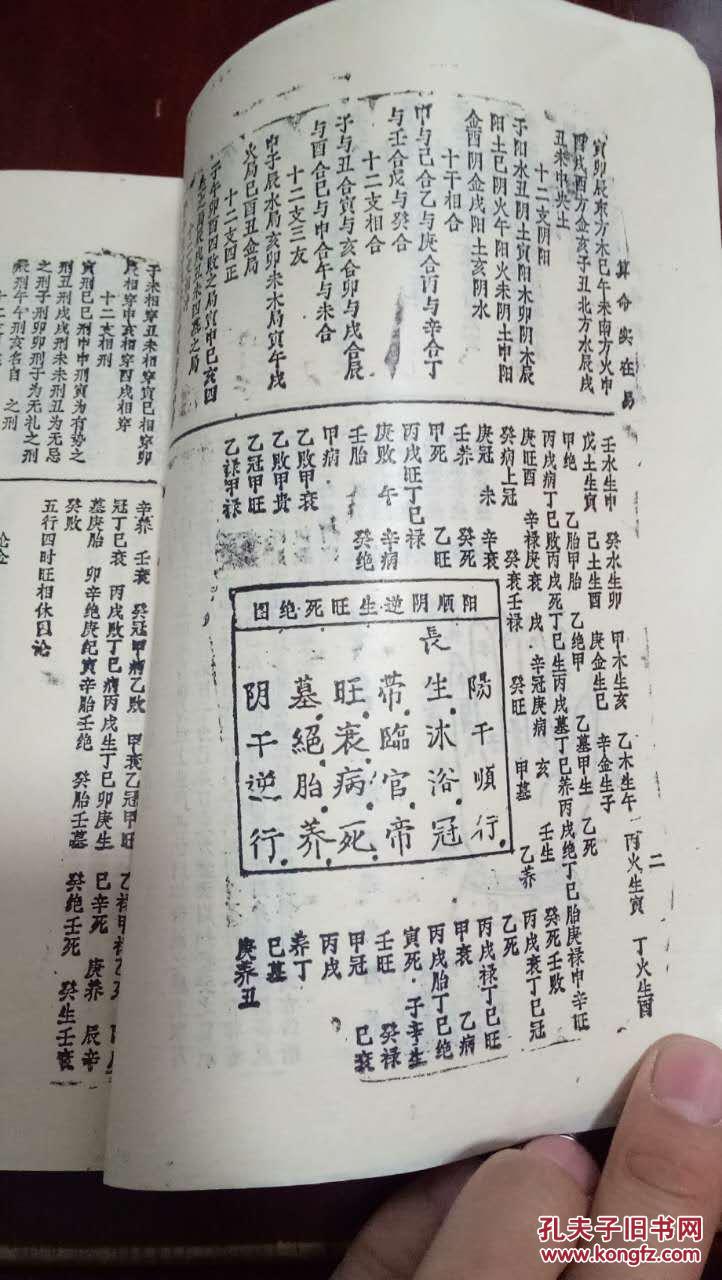 算命实在易
二
寅卯辰东方木巳午未南方火申
酉戌西方金亥子丑北方水辰戌
丑未中央土
十二支阴阳
子阳水丑阴土寅阳木卯阴木辰
阳土巳阴火午阳火未阴土申阳
金酉阴金戌阳土亥阴水
十干相合
甲与己合乙与庚合丙与辛合丁
与壬合戊与癸合
十二支相合
子与丑合寅与亥合卯与戌合辰
与酉合巳与申合午与未合
十二支三友
申子辰水局亥卯未木局寅午戌
火局巳酉丑金局
十二支四正
子午卯酉四败之局寅申巳亥四
壬水生申 癸水生卯 甲木生亥 乙木生午 丙火生寅 丁火生酉
戊土生寅 己土生酉 庚金生巳 辛金生子
甲绝 乙胎甲胎 乙绝甲 乙墓甲生 乙死
丙戌病丁巳败丙戌死丁巳生丙戌墓丁巳养丙戌绝丁巳胎庚禄申辛旺
庚旺酉 辛禄庚衰 戌 辛冠庚病 亥 壬生 癸死壬败
癸病上冠 癸衰壬禄 癸旺 甲墓 乙养 丙戌衰丁巳冠
庚冠 未 辛衰 乙死
壬养 癸死 丙戌禄丁巳旺
甲死 乙旺 甲衰 乙病
丙戌旺丁巳禄 丙戌胎丁巳绝
庚败 午 辛病 寅死 子辛生
壬胎 癸绝 壬旺 癸禄
甲病 甲冠 巳衰
乙败甲衰 丙戌
乙败甲贵 养丁
乙冠甲旺 巳墓
乙禄甲禄 庚养丑
阳顺阴逆生旺死绝图
陽干順行
長生沐浴冠
带臨官帝
旺衰病死
墓絕胎养
阴干逆行
子未相穿丑未相穿寅巳相穿卯
辰相穿申亥相穿酉戌相穿
十二支相刑
寅刑巳巳刑申申刑寅为有势之
刑丑刑戌戌刑未未刑丑为无忌
之刑子刑卯卯刑子为无礼之刑
辰刑午午刑亥名自 之刑
辛养 壬衰 癸冠甲病乙败 甲衰乙冠甲旺 乙禄甲禄
冠丁巳衰 丙戌败丁巳病丙戌生丁巳卯庚生 巳辛死 庚养 辰辛
墓庚胎 卯辛绝庚纪寅辛胎壬绝 癸胎壬墓 癸绝壬死 癸生壬衰
癸败
五行四时旺相休囚论
孔夫子旧书网
www.kongfz.com